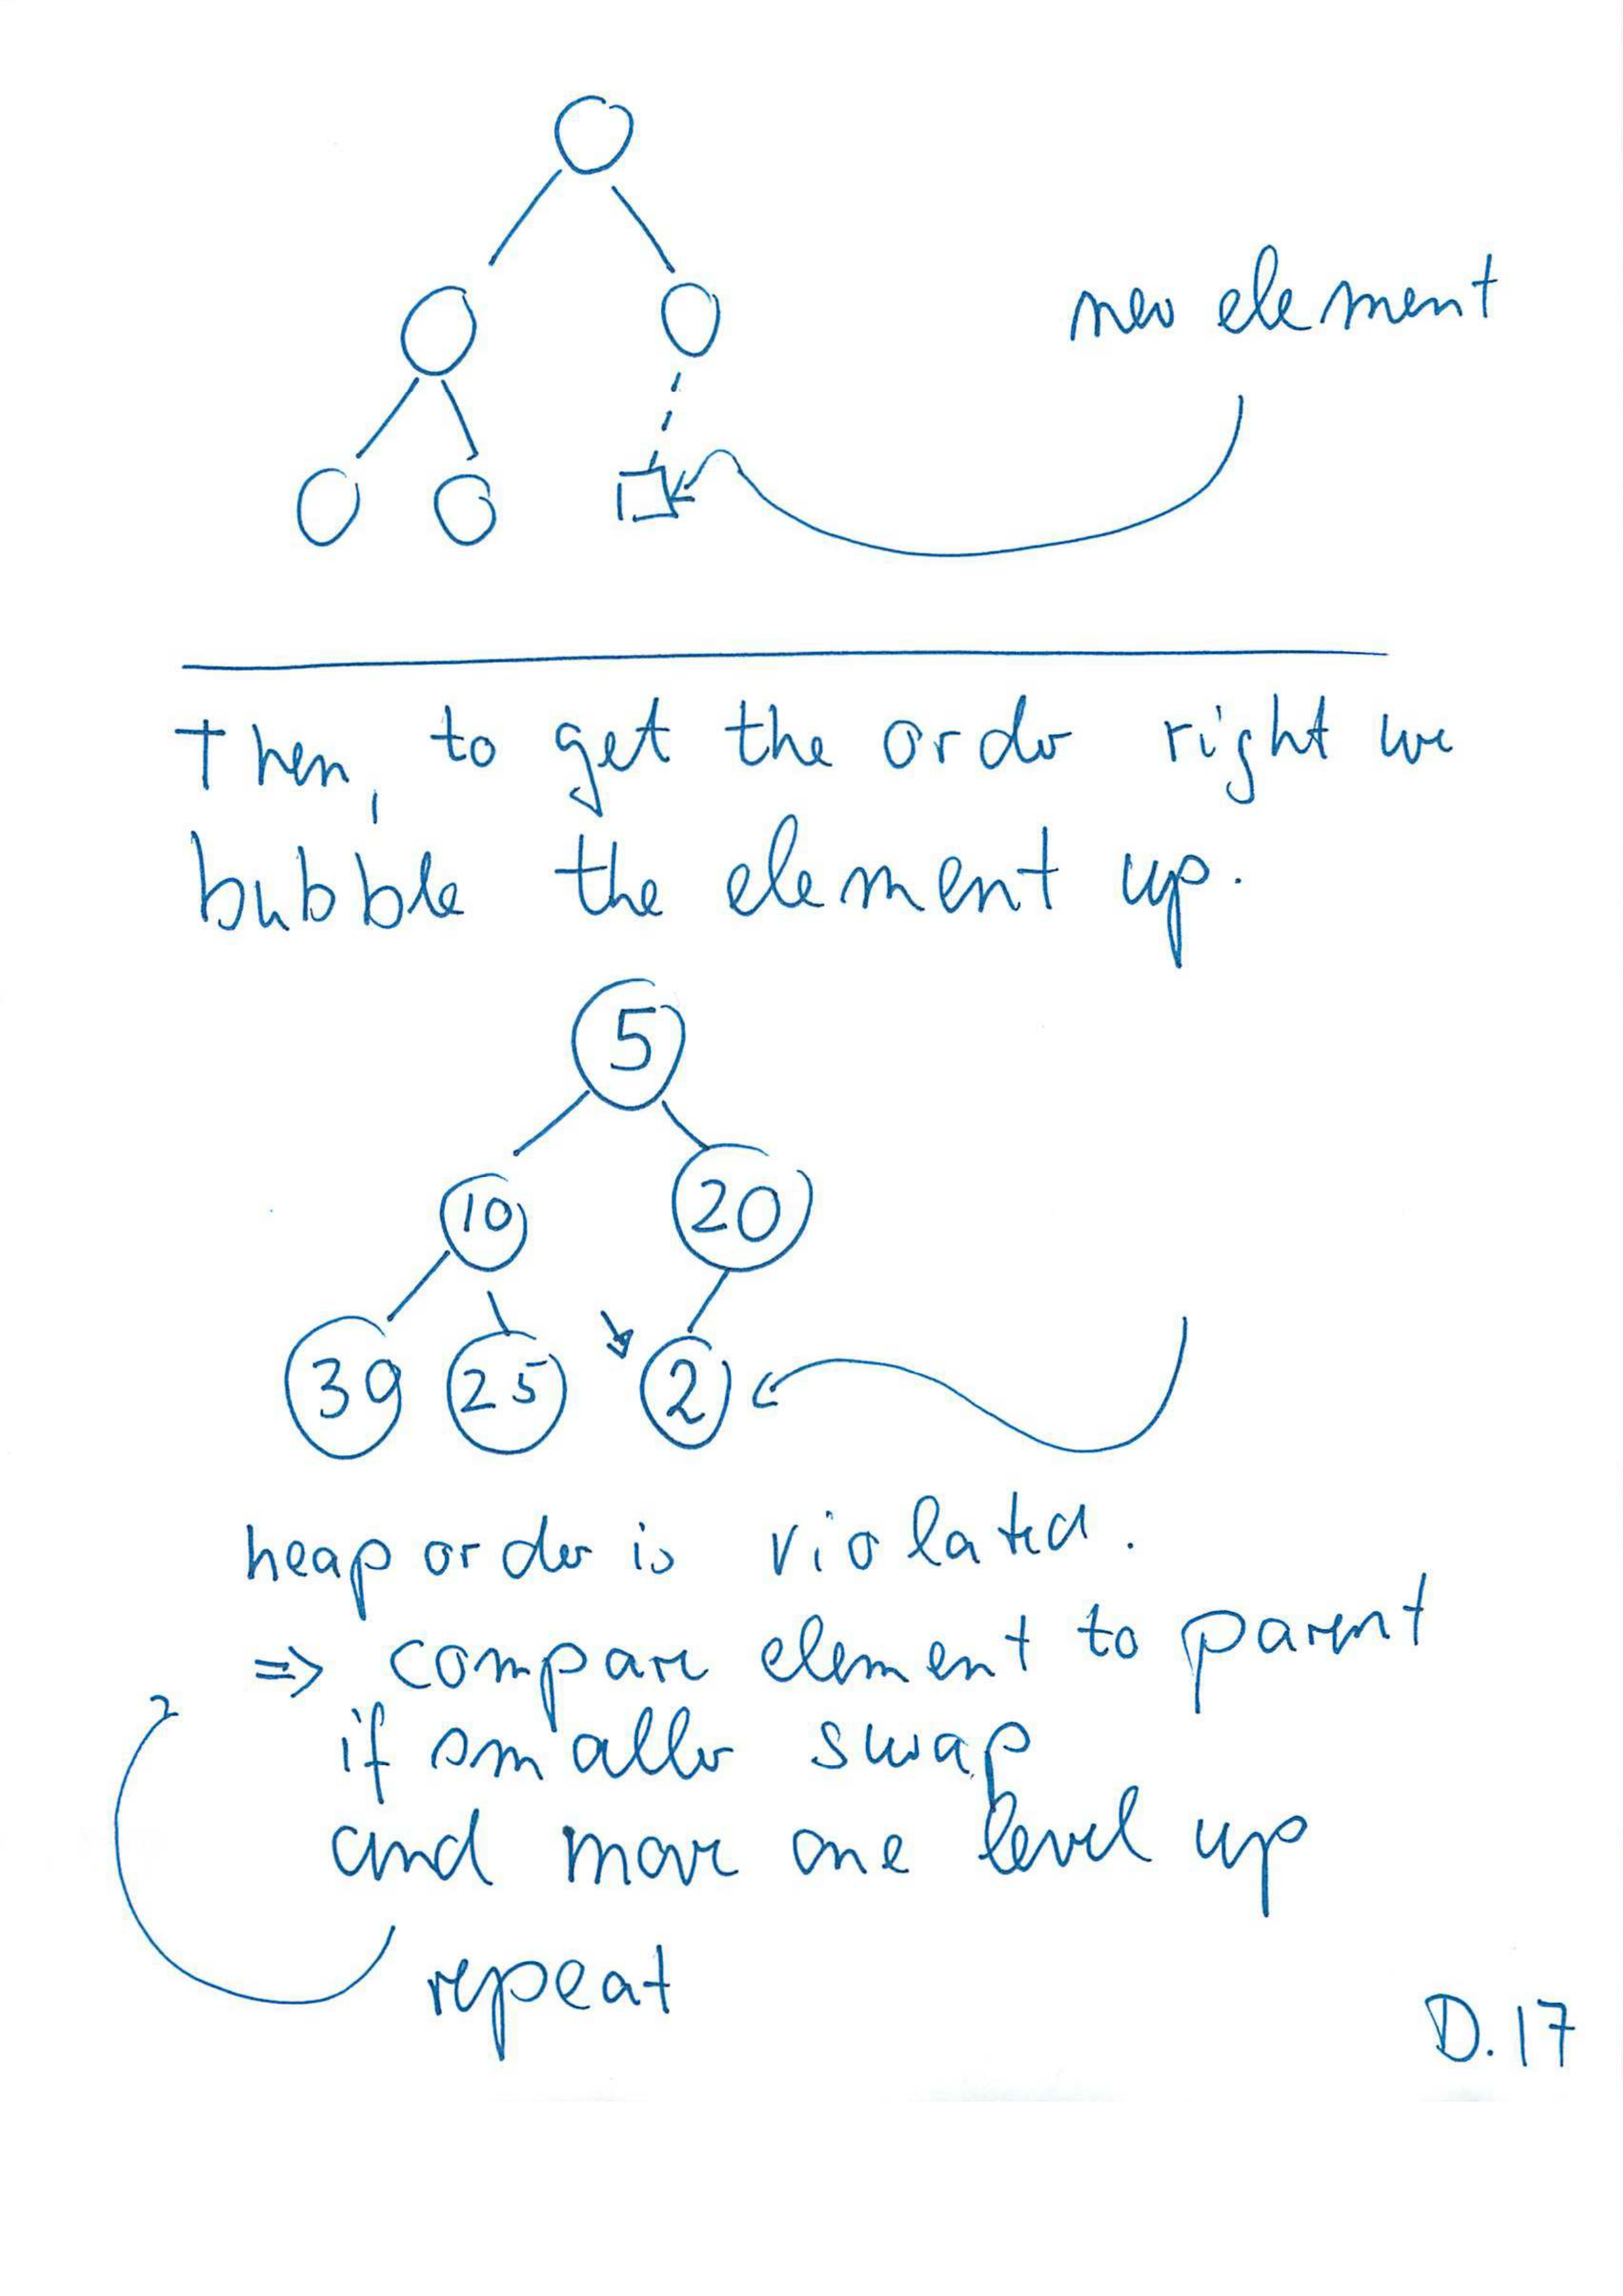 new element
Then, to get the order right we
bubble the element up.
5
10 20
39 25 2
heap order is violated.
=> compare element to parent
if smaller swap
and move one level up
repeat
D.17